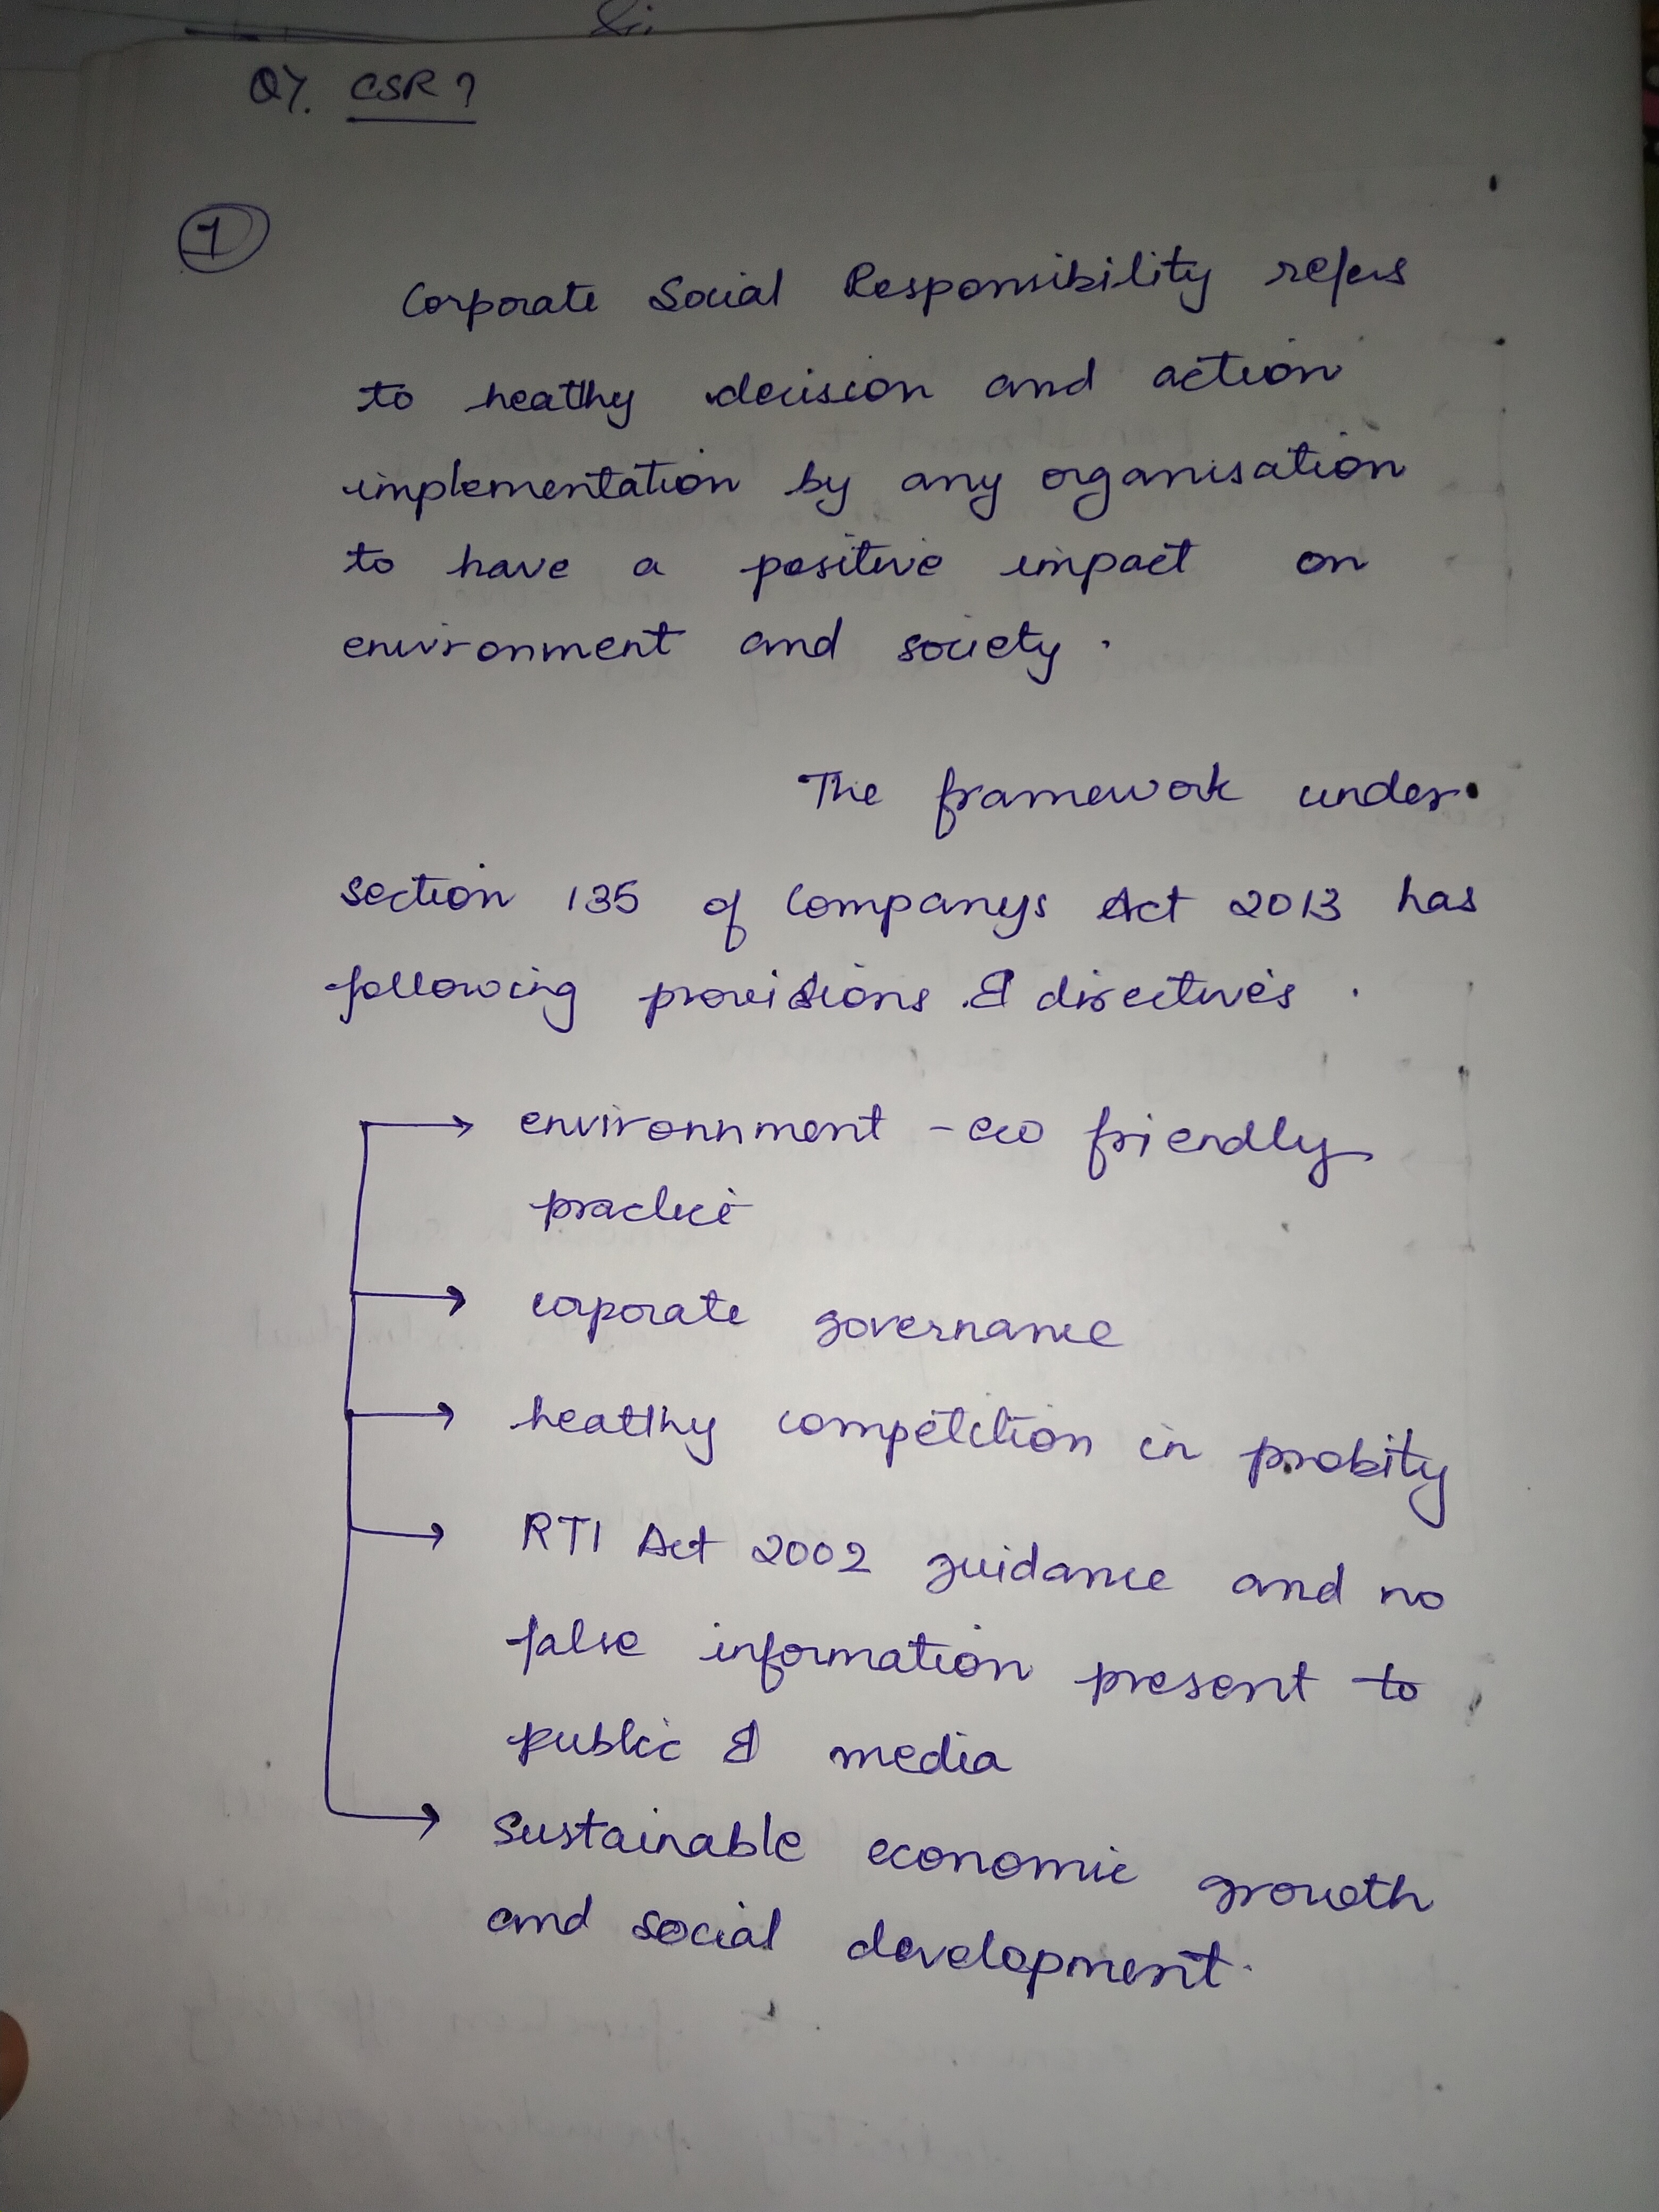 Q7. CSR ?
1
Corporate Social Responsibility refers
to heathy decision and action
implementation by any organisation
to have a positive impact on
environment and society.
The framework under
section 135 of Companys Act 2013 has
following provisions & directives.
environnment - eco friendly
practice
corporate governance
heatlhy competition in probity
RTI Act 2002 guidance and no
false information present to
public & media
Sustainable economic growth
and social development.